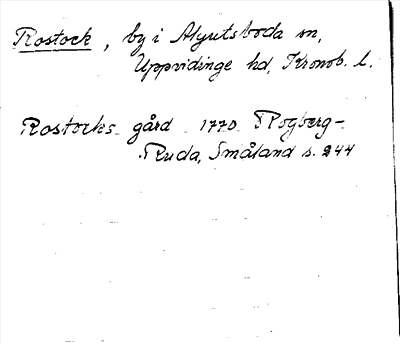 Rostock, by i Algutsboda sn,
Uppvidinge hd, Kronob. l.
Rostocks gård 1770 Rogberg-
Ruda, Småland s. 244